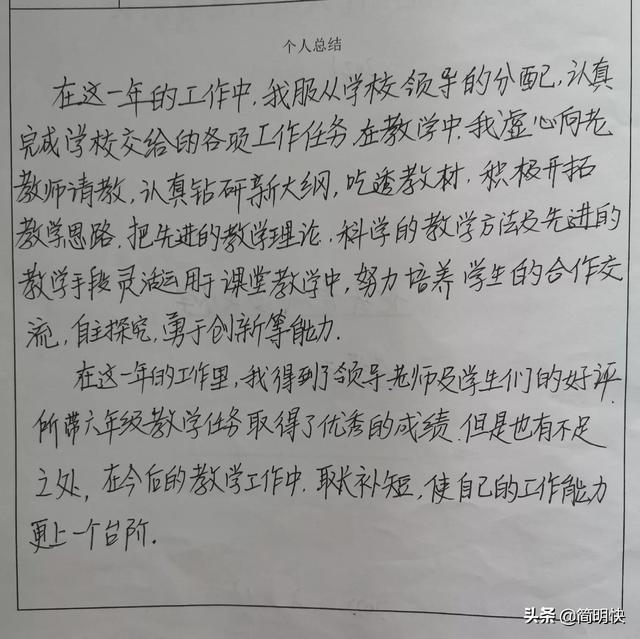 个人总结
在这一年的工作中,我服从学校领导的分配,认真
完成学校交给的各项工作任务.在教学中.我虚心向老
教师请教,认真钻研新大纲,吃透教材.积极开拓
教学思路.把先进的教学理论.科学的教学方法及先进的
教学手段灵活运用于课堂教学中,努力培养学生的合作交
流,自主探究,勇于创新等能力.
在这一年的工作里,我得到了领导.老师及学生们的好评.
所带六年级教学任务取得了优秀的成绩.但是也有不足
之处,在今后的教学工作中.取长补短,使自己的工作能力
更上一个台阶.
头条 @简明快